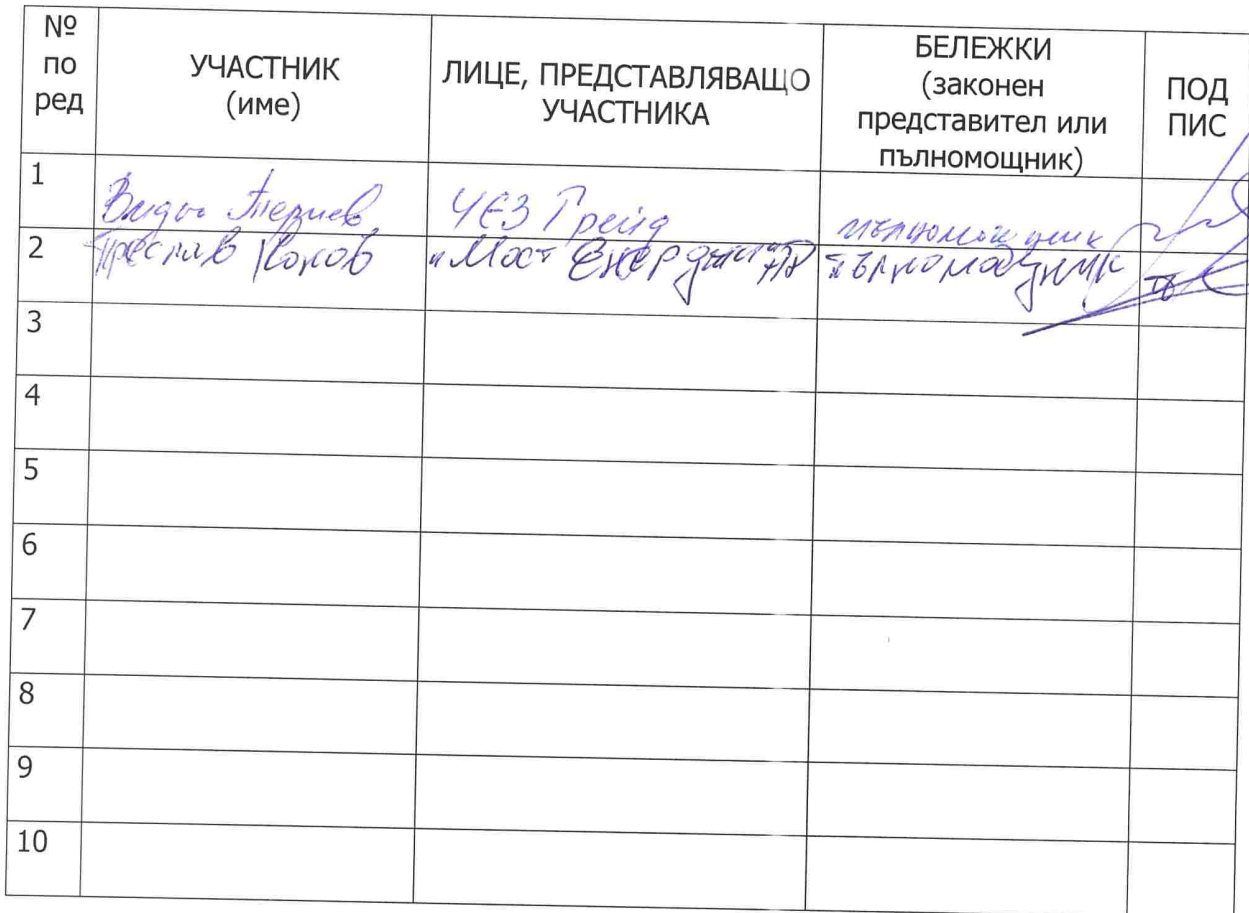 № по ред
УЧАСТНИК (име)
ЛИЦЕ, ПРЕДСТАВЛЯВАЩО УЧАСТНИКА
БЕЛЕЖКИ (законен представител или пълномощник)
ПОД ПИС
1
ЧЕЗ Трейд
пълномощник
2
Преслав
"Мост Енерджи" АД
пълномощник
3
4
5
6
7
8
9
10